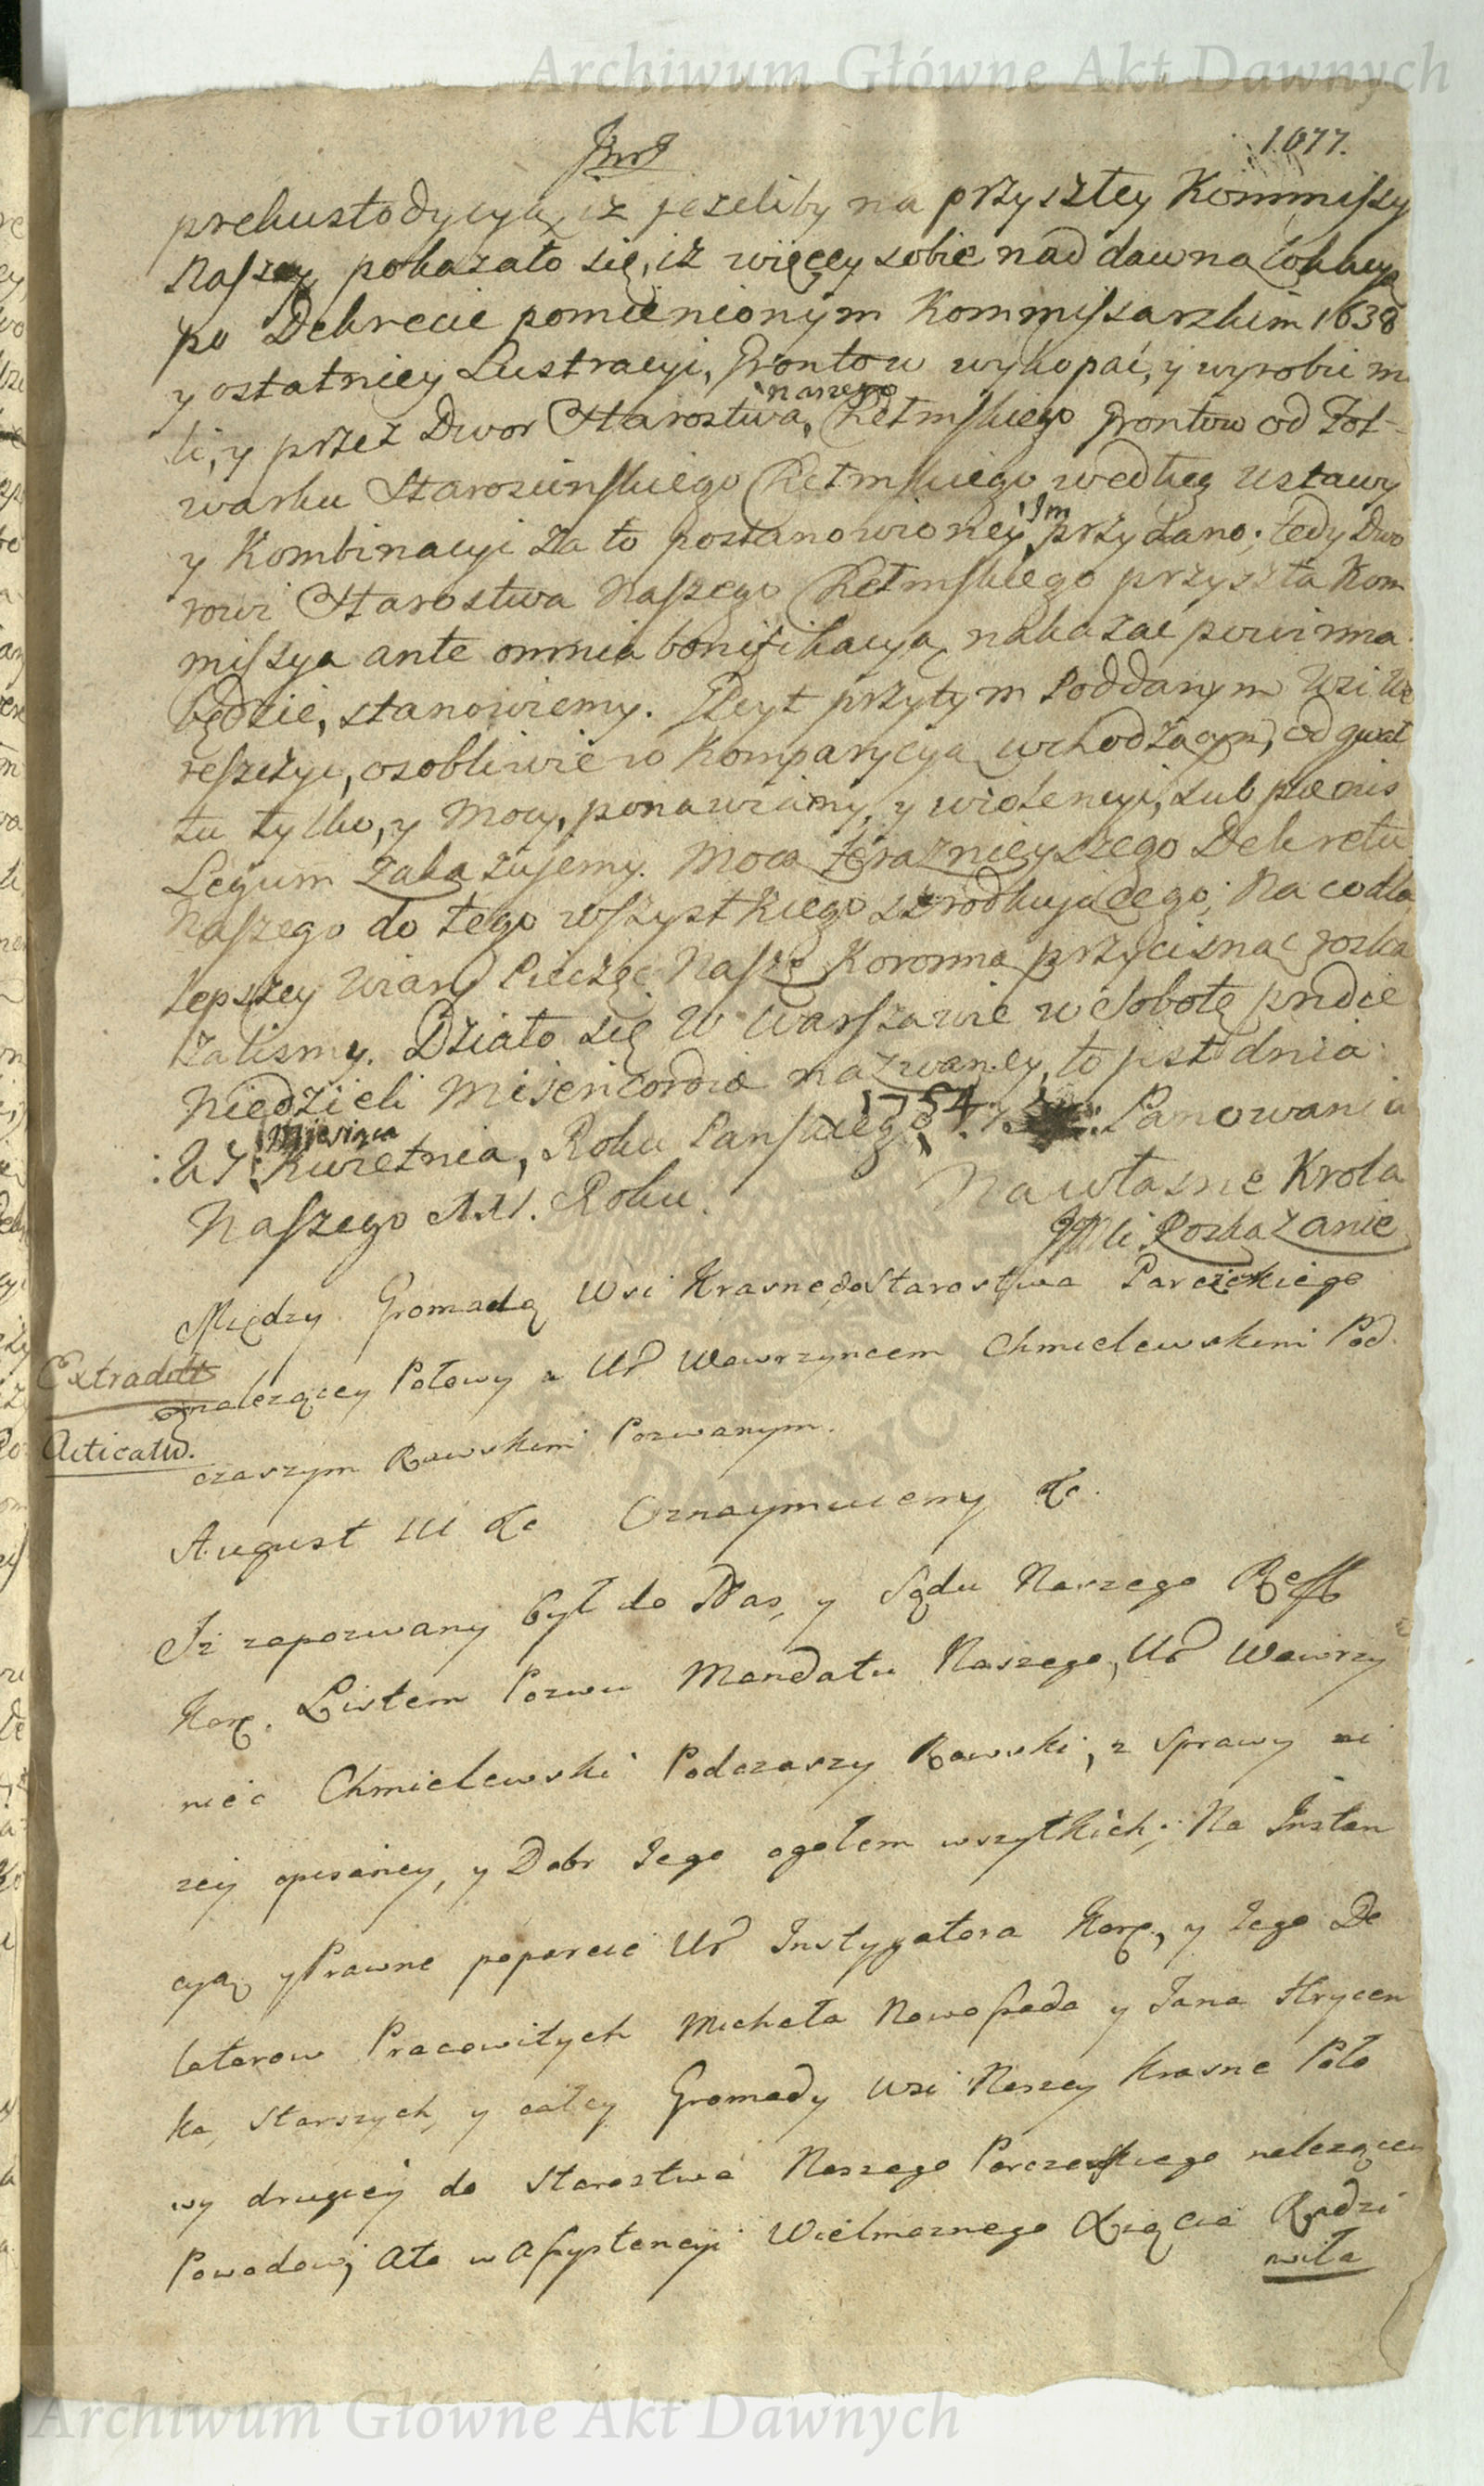 Archiwum Główne Akt Dawnych
1077.
prekustodycyą, iz jezeliby na przyszłey Kommissy
Naszey pokazało się, iz więcey sobie nad dawną lokacyą
po Dekrecie pomienionym Kommissarskim 1638
y ostatniey Lustracyi, Grontow wykopać, y wyrobić m
li, y przez Dwor Starostwa naszego Chełmskiego Grontow od Fol-
warku Staroscinskiego Chełmskiego według Ustawy
y Kombinacyi za to postanowioney Im przydano; tedy Dwo
rowi Starostwa Naszego Chełmskiego przyszła Kom
missya ante omnia bonifikacyą nakazać powinna
będzie, stanowiemy. Gleyt przytym Poddanym Wsi We
reszczyc, osobliwie w Komparycyą wchodzącym, od gwał
tu tylko, y mocy, ponawiamy, y wiolencyi, sub poenis
Legum zakazujemy. Mocą teraznieyszego Dekretu
Naszego do tego wszystkiego szrodkującego; Na co dla
lepszey wiary Pieczęć Naszą Koronną przycisnąć rozka
zalismy. Działo się w Warszawie w Sobotę pridie
Niedzieli Misericordiæ nazwaney, to jest dnia
:27: Miesiąca Kwietnia, Roku Panskiego 1754. Panowania
Naszego Roku.
Na własne Krola
JMci Rozkazanie
Między Gromadą Wsi Krasnego Starostwa Parczewskiego
nalezącey Połowy a Ur Wawrzyncem Chmielewskim Pod
czaszym Rawskim Pozwanym.
Extradit
Acticatū.
August III &c Oznaymuiemy &c.
Iz zapozwany był do Nas, y Sądu Naszego Reff
Kore. Listem Pozwu Mandatu Naszego, Ur Wawrzy
niec Chmielewski Podczaszy Rawski, z sprawy ni
zey opisaney, y Dobr Jego ogołem wszytkich; Na Instan
cyą y Prawne poparcie Ur Instygatora Kore, y Jego De
latorow Pracowitych Michała Nowosada y Jana Hrycen
ka, Starszych, y całey Gromady Wsi Naszey Krasne Poło
wy drugiey do Starostwa Naszego Parczewskiego nalezącey
Powodow, Ato w Assystencyi Wielmoznego Xiązcia Radzi
wiła
Archiwum Główne Akt Dawnych